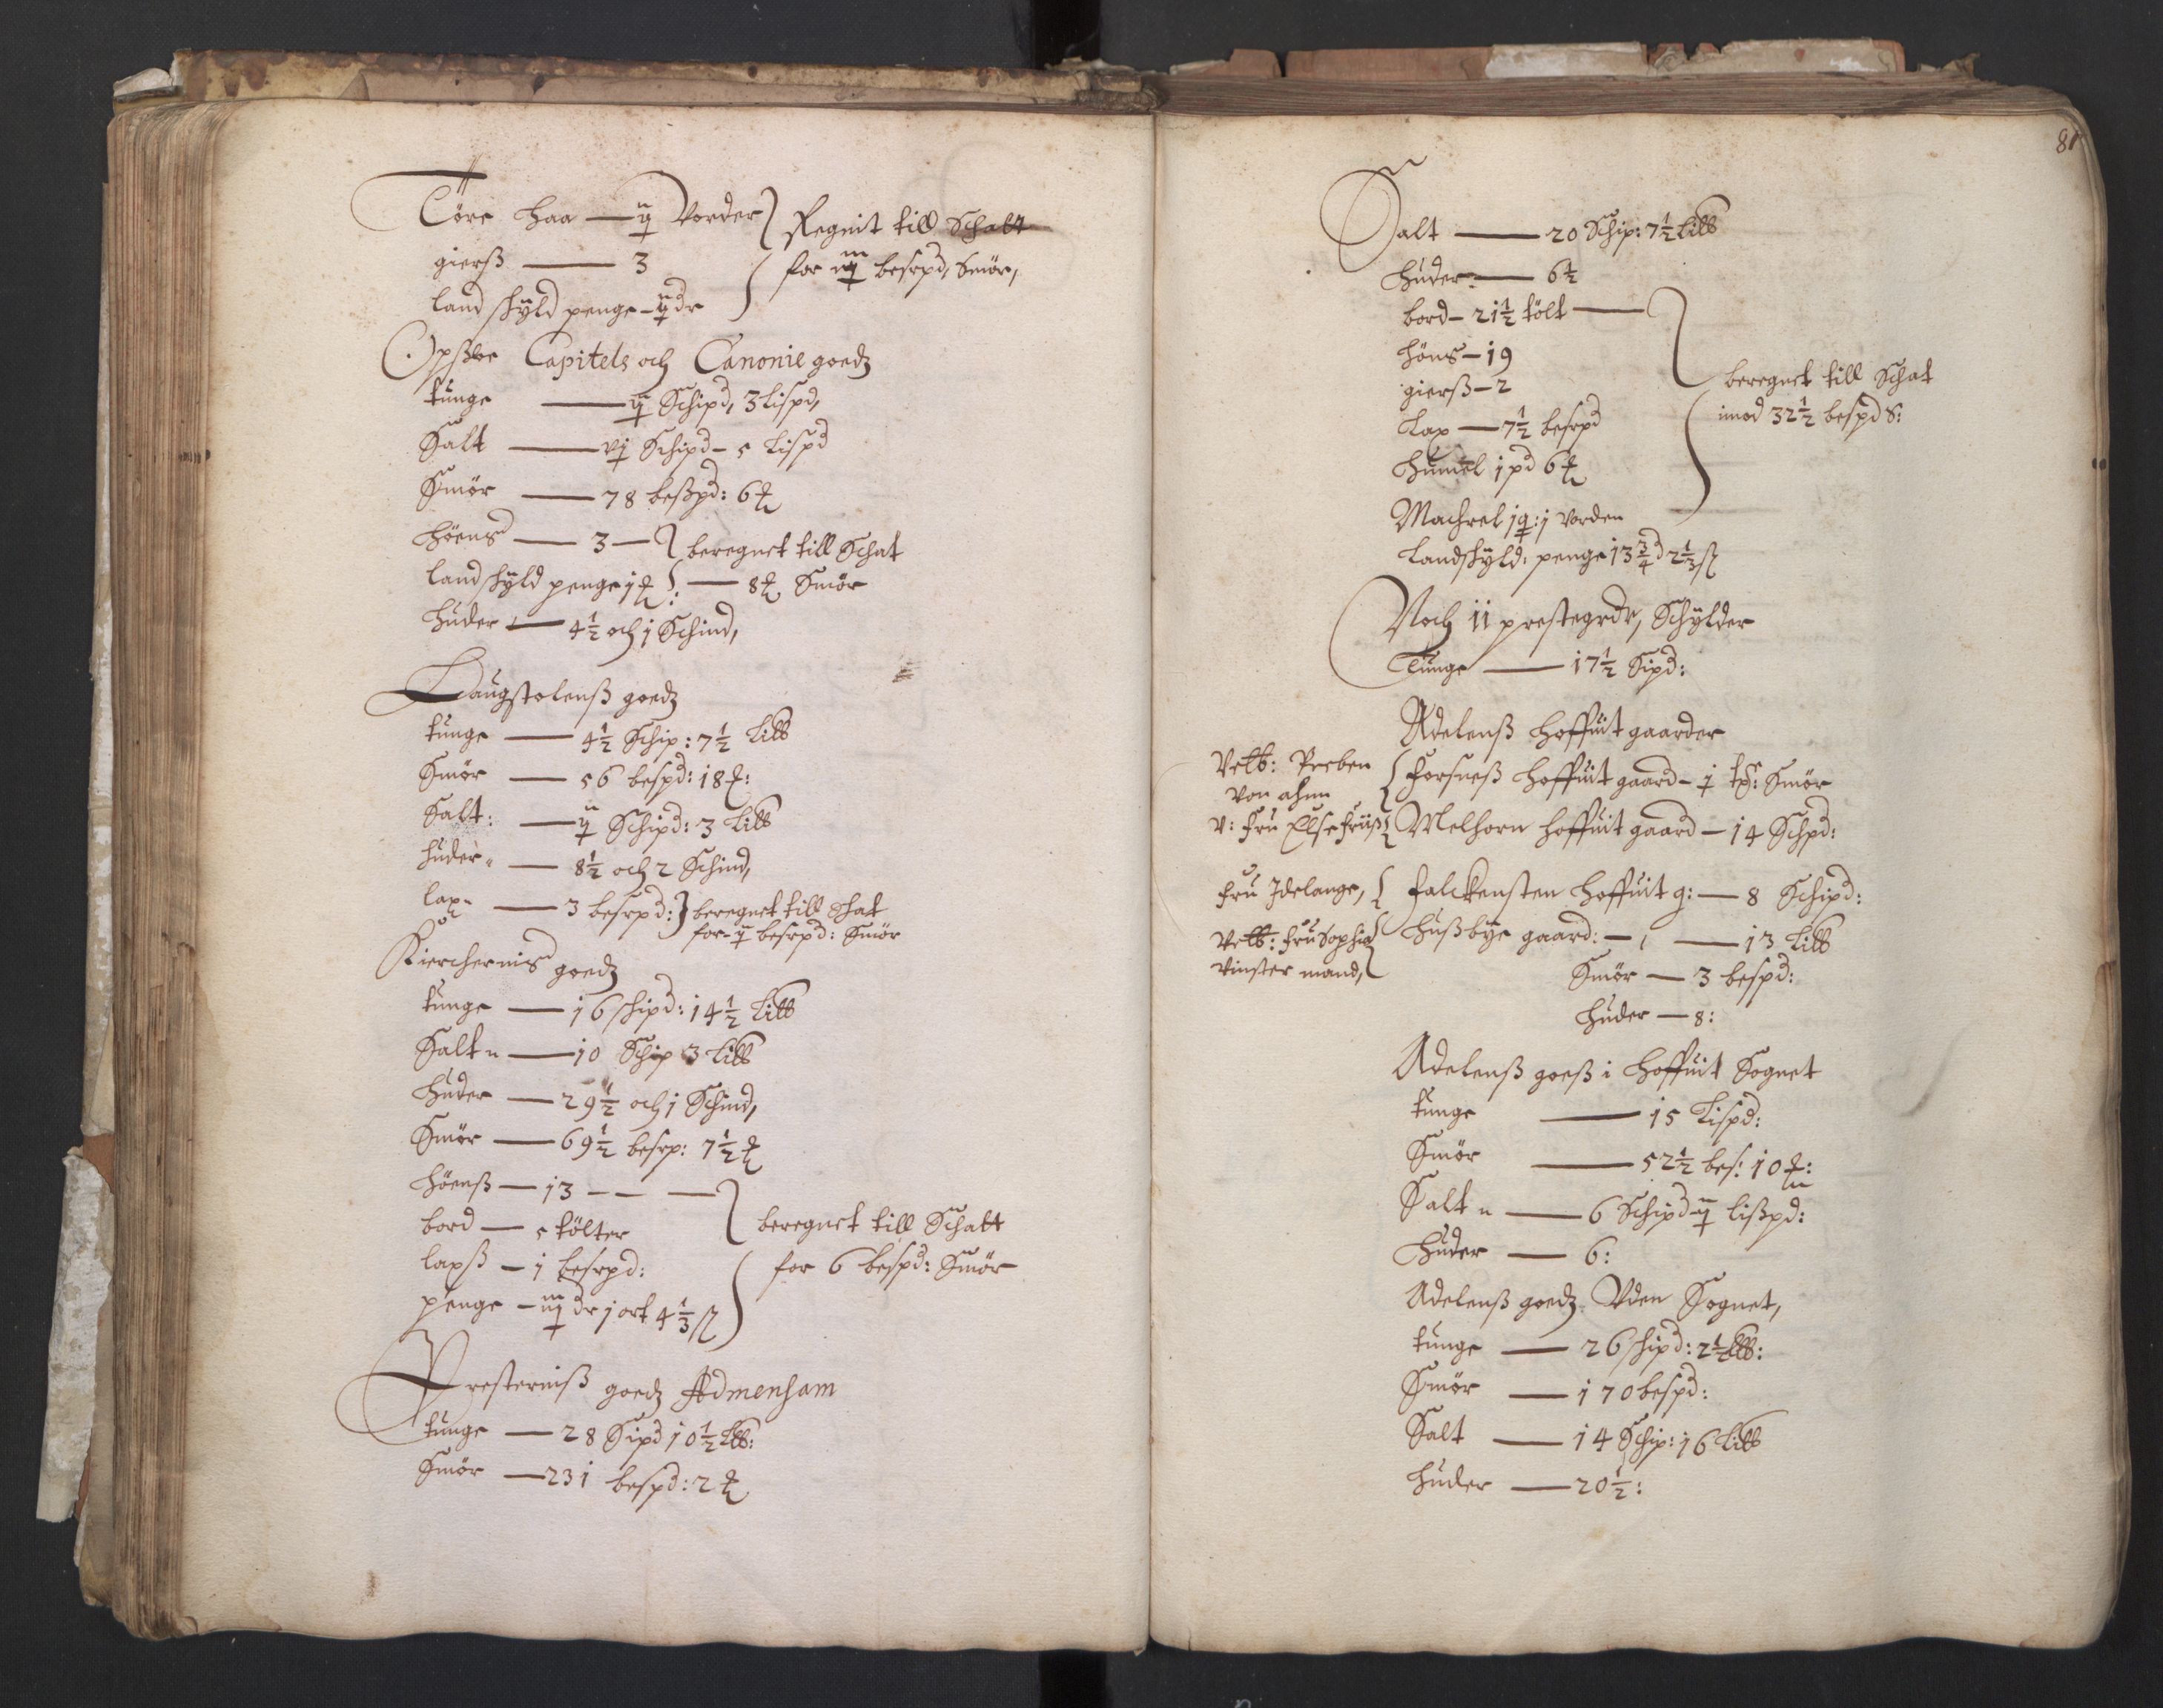 Töre haa — ij Vorder } Regnit till Schatt
gierß — 3 for iiij besepd, Smör,
land skyld penge - ij dr
Opsloe Capitels och Canonie goedz
tunge — ij Schipd, 3 Lispd,
Salt — vj Schipd - 5 Lispd
Smör — 78 beßpd: 6 ℔
höens — 3 — } beregnet till Schat
land skyld penge 1 ℔ : — 8 ℔ Smör
huder — 4½ och 1 Schind,
Laugstolenß goedz
tunge — 4½ Schip: 7½ Lib
Smör — 56 bespd: 18 ℔:
Salt: — ij Schipd: 3 Lib
huder — 8½ och 2 Schind,
lax — 3 besepd: } beregnet till Schat
for - ij besepd: Smör
Kierchernis goedz
tunge — 16 schipd: 14½ Lib
Salt — 10 Schip 3 Lib
huder — 29½ och 1 Schind,
Smör — 69½ besep: 7½ ℔
höenß — 13 — —
bord — 5 tölter beregnet till Schatt
laxß — 1 besepd: for 6 bespd: Smör
penge — iiij dr 1 ort 4⅓ ß
Presterniß goedz Admensam
tunge — 28 Sipd 10½ Lib:
Smör — 231 bespd: 2 ℔
81
Salt — 20 Schip: 7½ Lib
huder — 6½
bord — 21½ tölt —
höns — 19
gierß — 2 beregnet till Schat
Lax — 7½ besepd imod 32½ bespd S:
humel 1 pd 6 ℔
Machrel 1 q: 1 Vorden
Landskyld: penge 13¾ d 2⅓ ß
Noch 11 prestegrdr, Schylder
Tunge — 17½ Sipd:
Adelenß hoffuit gaarder
Velb: Preben
von ahnn { Forsneß hoffuit gaard - j Smör
V: Fru Else Friiß { Melhorn hoffuit gaard — 14 Schpd:
Fru Idelange, { Falckensten hoffuit g: — 8 Schipd:
Velb: Fru Sophia { hußbye gaard: — 13 Lib
Vinster mand,
Smör — 3 bespd:
huder — 8:
Adelenß goeß i hoffuit Sognet
tunge — 15 Lispd:
Smör — 52½ bes: 10 ℔:
Salt — 6 Schipd iij lißpd:
huder — 6:
Adelenß goedz Uden Sognet,
tunge — 26 schipd: 2½ Lib:
Smör — 170 bespd:
Salt — 14 Schip: 16 Lib
huder — 20½: